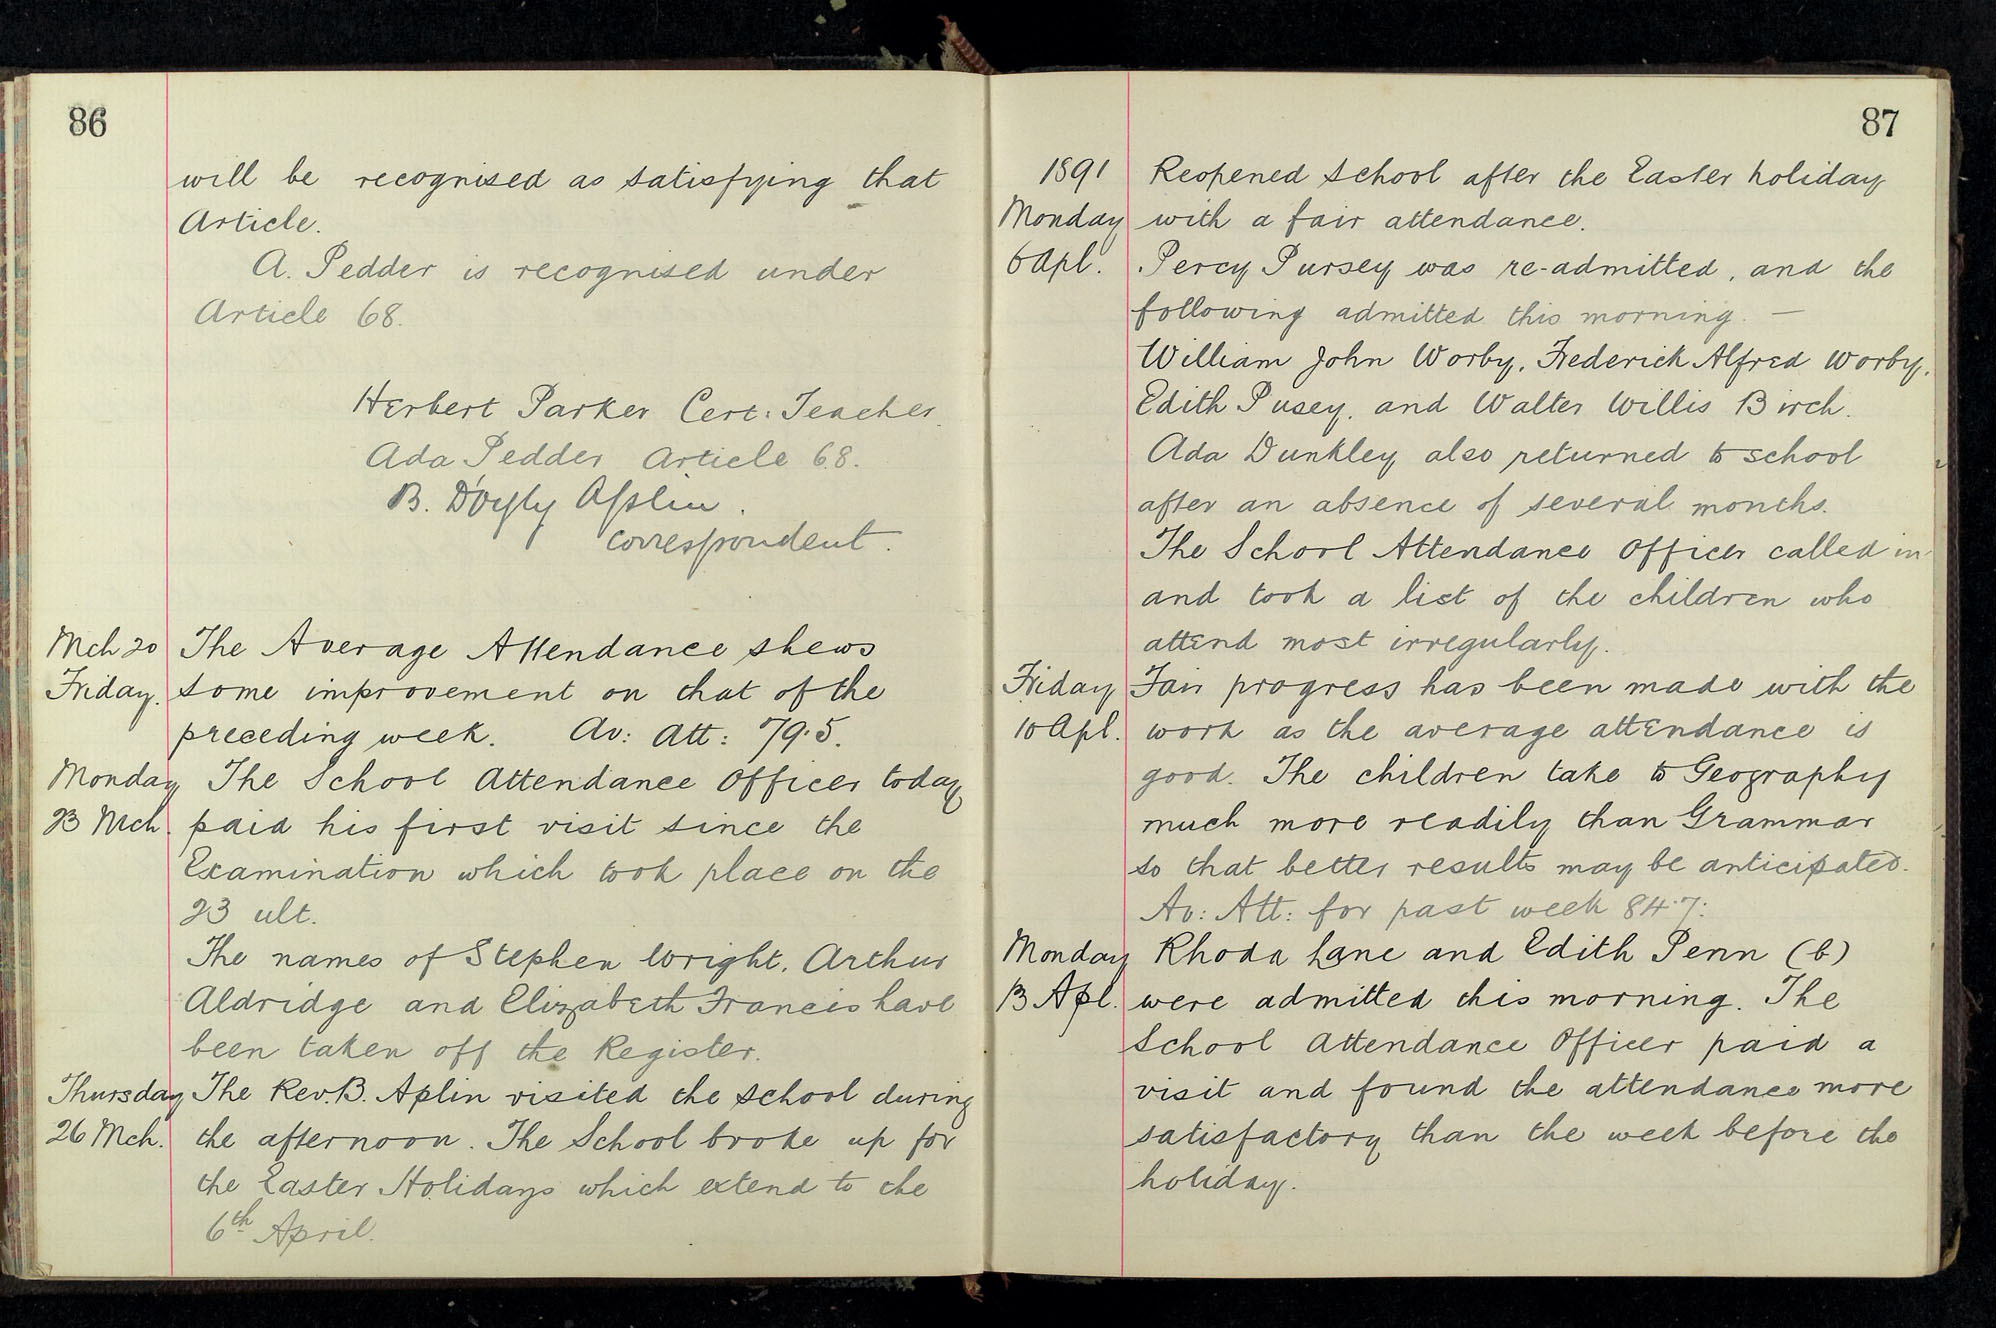 86
will be recognised as satisfying that
Article.
A. Pedder is recognised under
Article 68.
Herbert Parker Cert: Teacher.
Ada Pedder Article 68.
B. D'Oyly Aplin.
correspondent.
Mch 20 The Average Attendance shews
Friday. some improvement on that of the
preceding week. Av: Att: 79.5.
Monday The School Attendance Officer today
23 Mch. paid his first visit since the
Examination which took place on the
23 ult.
The names of Stephen Wright, Arthur
Aldridge and Elizabeth Francis have
been taken off the Register.
Thursday The Rev. B. Aplin visited the school during
26 Mch. the afternoon. The School broke up for
the Easter Holidays which extend to the
6th April.
87
1891 Reopened School after the Easter holiday
Monday with a fair attendance.
6 Apl. Percy Pursey was re-admitted, and the
following admitted this morning. —
William John Worby, Frederick Alfred Worby,
Edith Pusey, and Walter Willis Birch.
Ada Dunkley also returned to school
after an absence of several months.
The School Attendance Officer called in
and took a list of the children who
attend most irregularly.
Friday Fair progress has been made with the
10 Apl. work as the average attendance is
good. The children take to Geography
much more readily than Grammar
so that better results may be anticipated.
Av: Att: for past week 84.7:
Monday Rhoda Lane and Edith Penn (b)
13 Apl. were admitted this morning. The
School Attendance Officer paid a
visit and found the attendance more
satisfactory than the week before the
holiday.